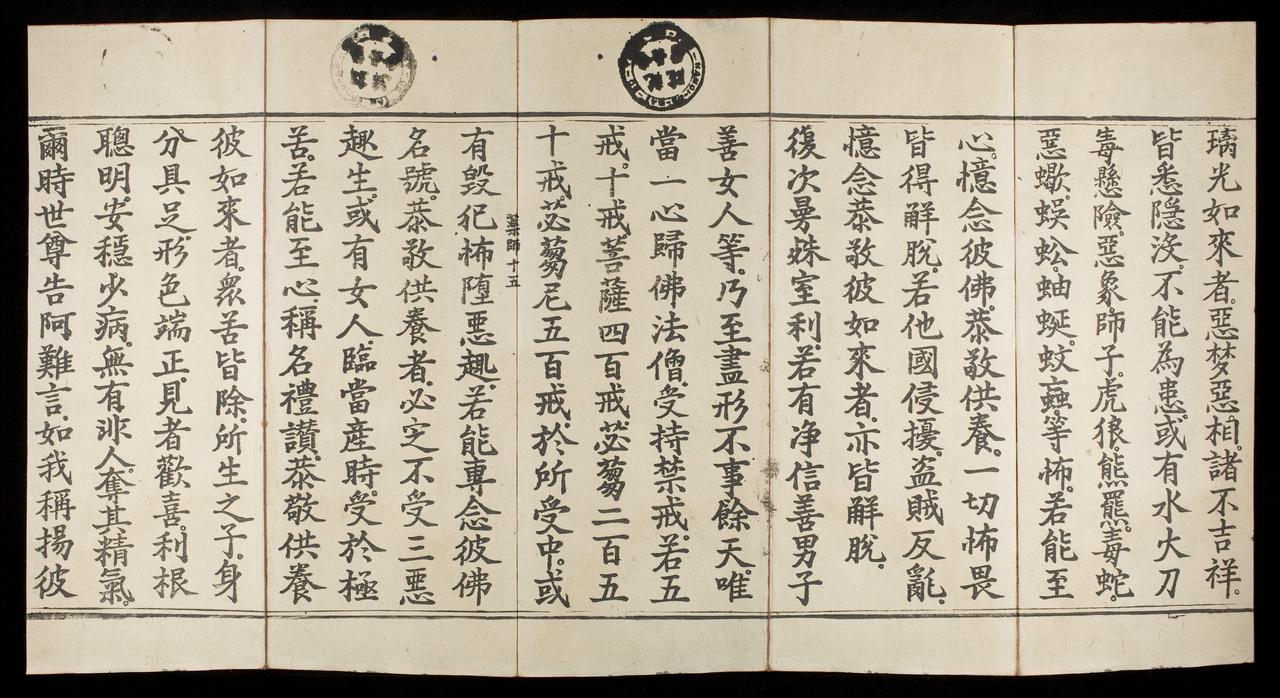 璃光如來者。惡梦惡相。諸不吉祥。
皆悉隱没。不能為患。或有水火刀
毒懸險。惡象師子。虎狼熊羆。毒蛇
惡蠍。蜈蚣蚰蜒。蚊䖟等怖。若能至
心。憶念彼佛。恭敬供養。一切怖畏
皆得解脫。若他國侵擾。盗賊反亂。
憶念恭敬彼如來者。亦皆解脫。
復次曼殊室利。若有净信善男子
善女人等。乃至盡形不事餘天。唯
當一心歸佛法僧。受持禁戒。若五
戒。十戒。菩薩四百戒。苾蒭二百五
十戒。苾蒭尼五百戒。於所受中。或
藥師 十五
有毀犯。怖墮惡趣。若能專念彼佛
名號。恭敬供養者。必定不受三惡
趣生。或有女人。臨當産時。受於極
苦。若能至心。稱名禮讃。恭敬供養
彼如來者。衆苦皆除。所生之子。身
分具足。形色端正。見者歡喜。利根
聰明。安穩少病。無有非人。奪其精氣。
爾時世尊告阿難言。如我稱揚彼